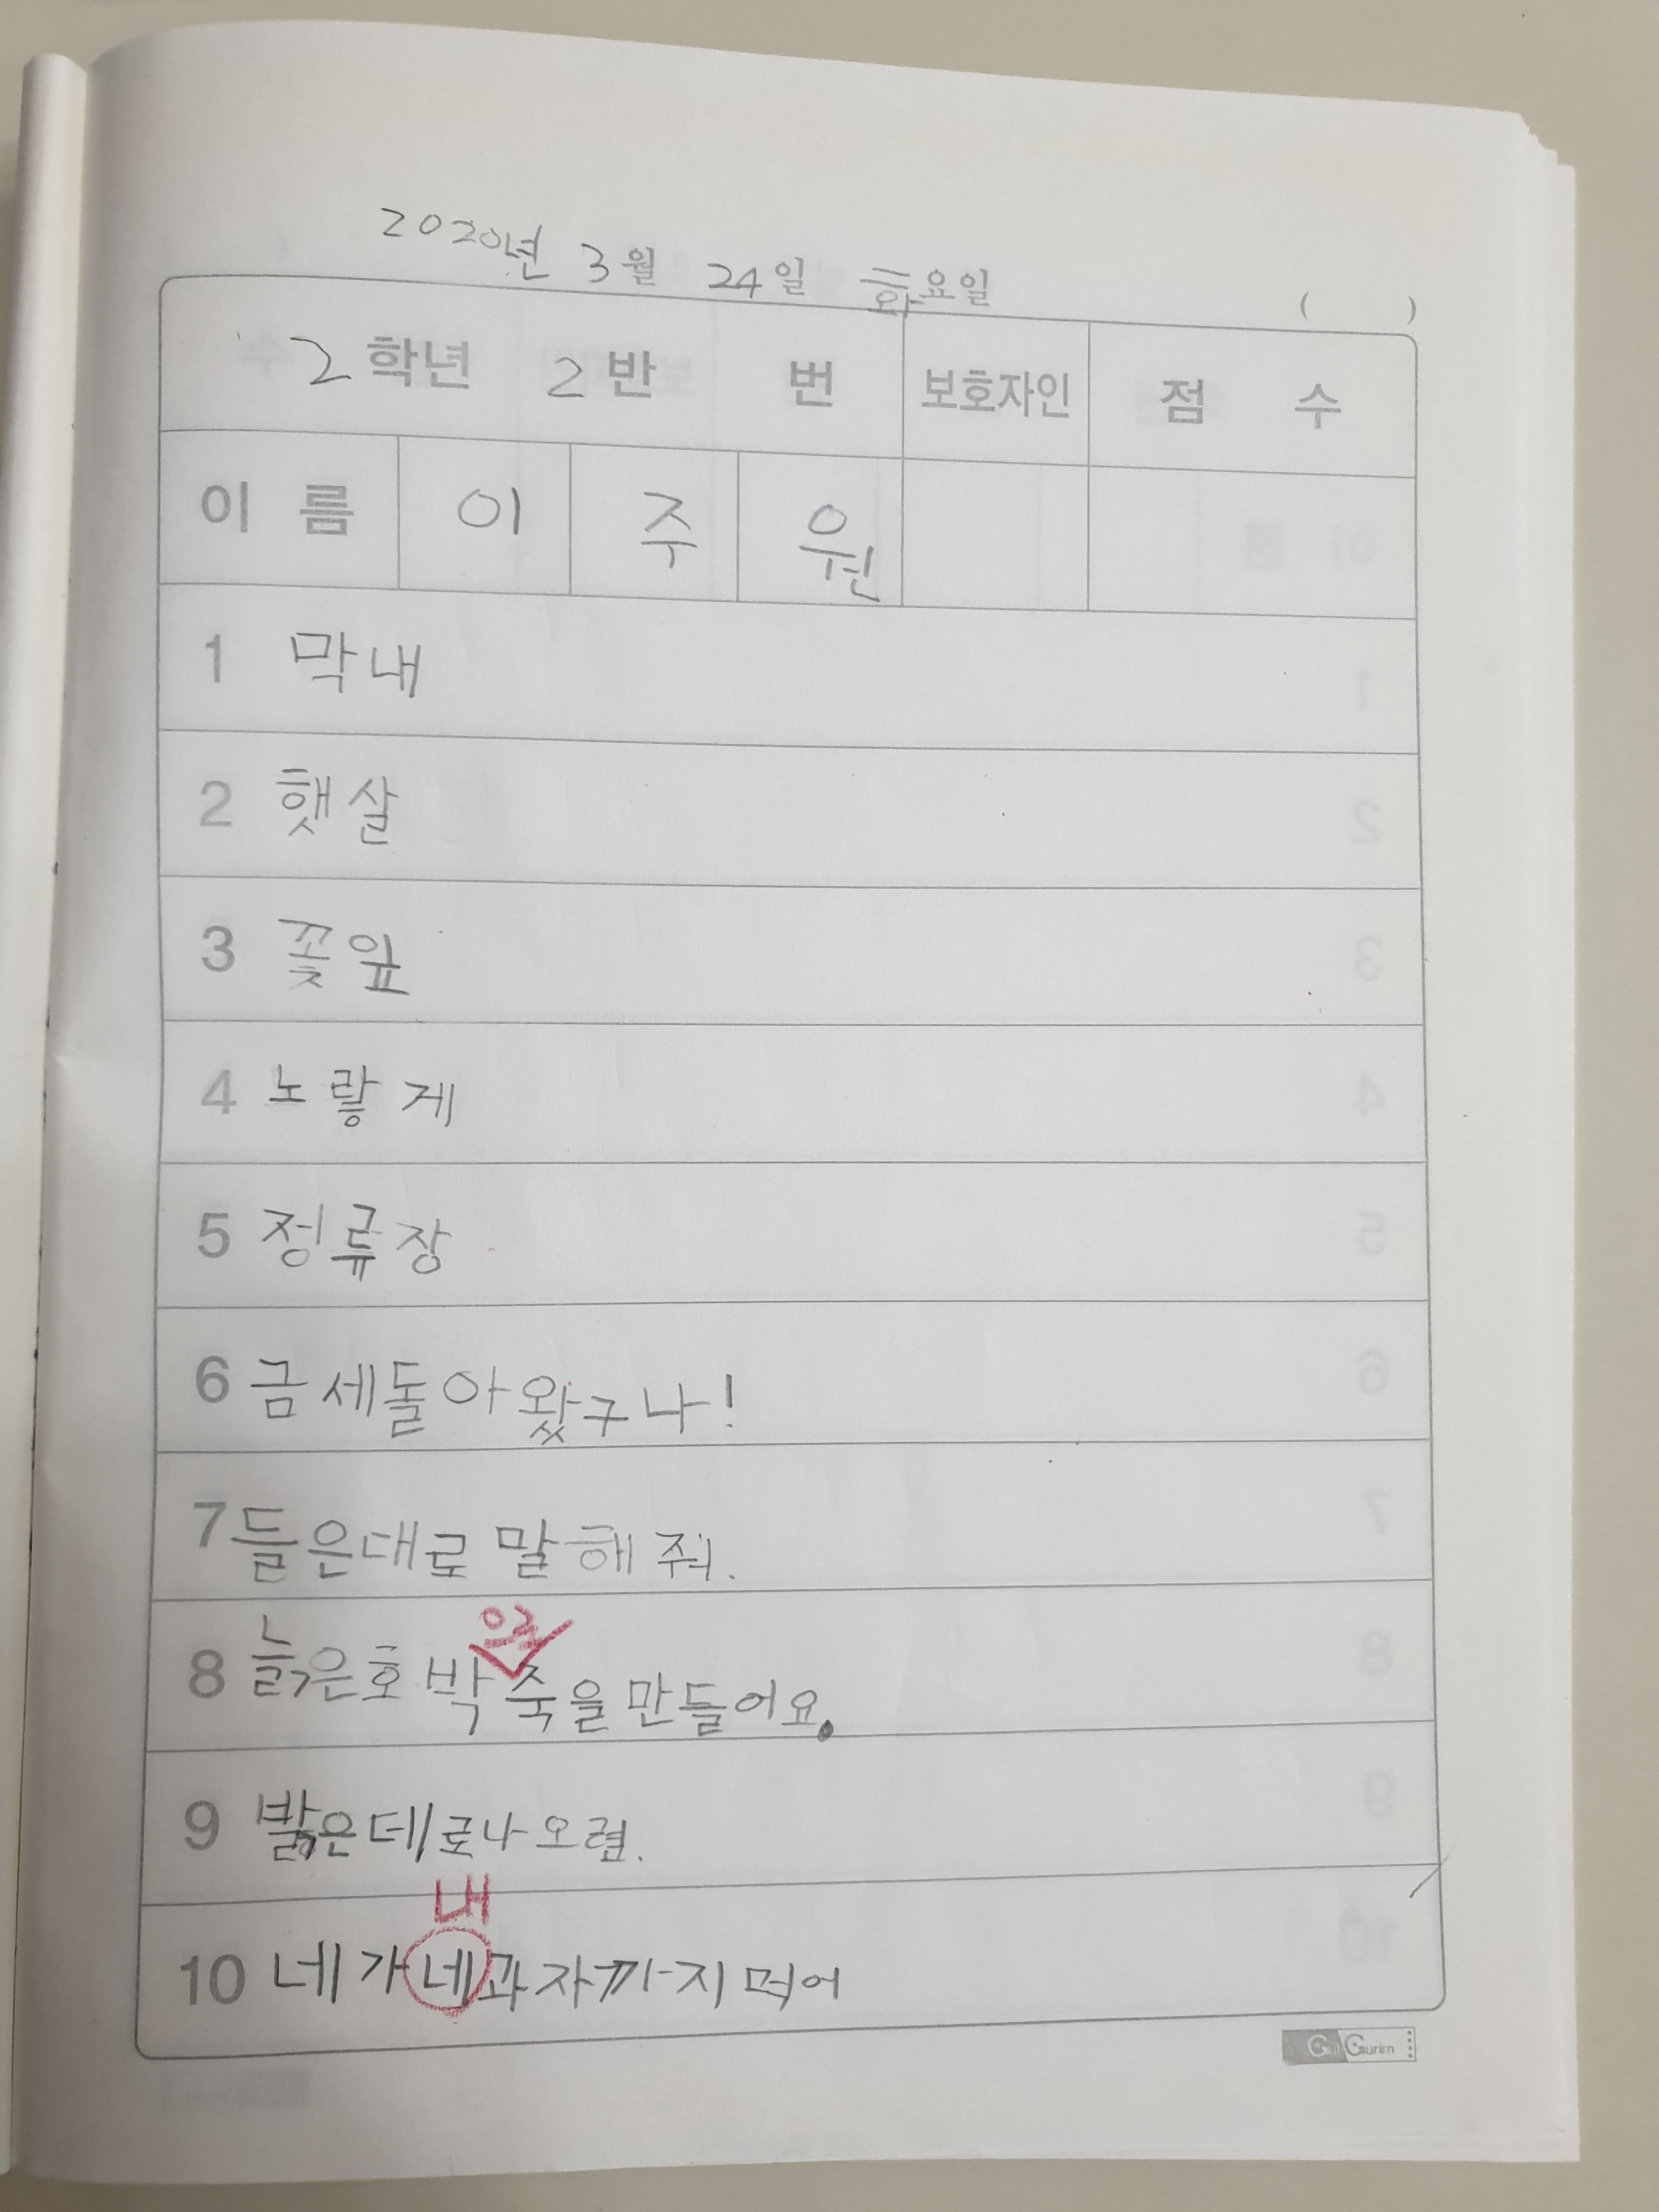 2020년 3월 24일 화요일 ( )
2 학년 2 반 번 보호자인 점 수
이 름 이 주 원
1 막내
2 햇살
3 꽃잎
4 노랗게
5 정류장
6 금세돌아왔구나!
7 들은대로 말해줘.
을
8 늙은호박죽을만들어요.
9 밝은데로나오렴.
내
10 네가네과자까지먹어
Gurim